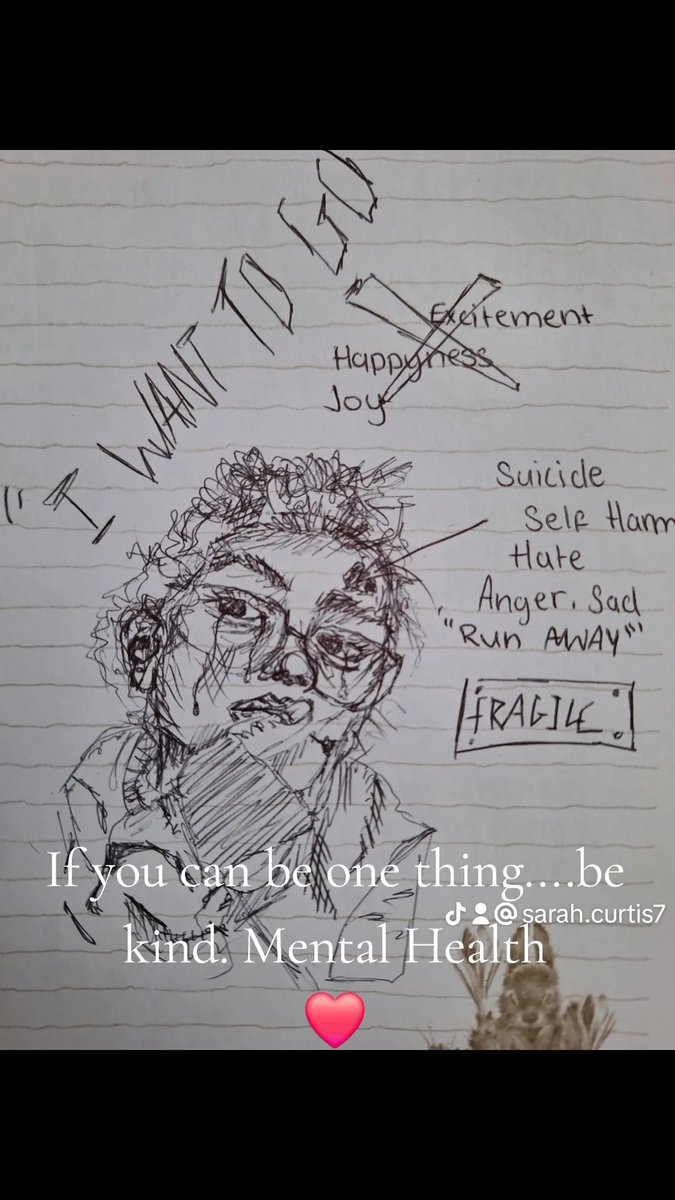 "I WANT TO GO
Excitement
Happyness
Joy
Suicide
Self Harm
Hate
Anger. Sad
"RUN AWAY"
FRAGILE
If you can be one thing....be
@sarah.curtis7
kind. Mental Health